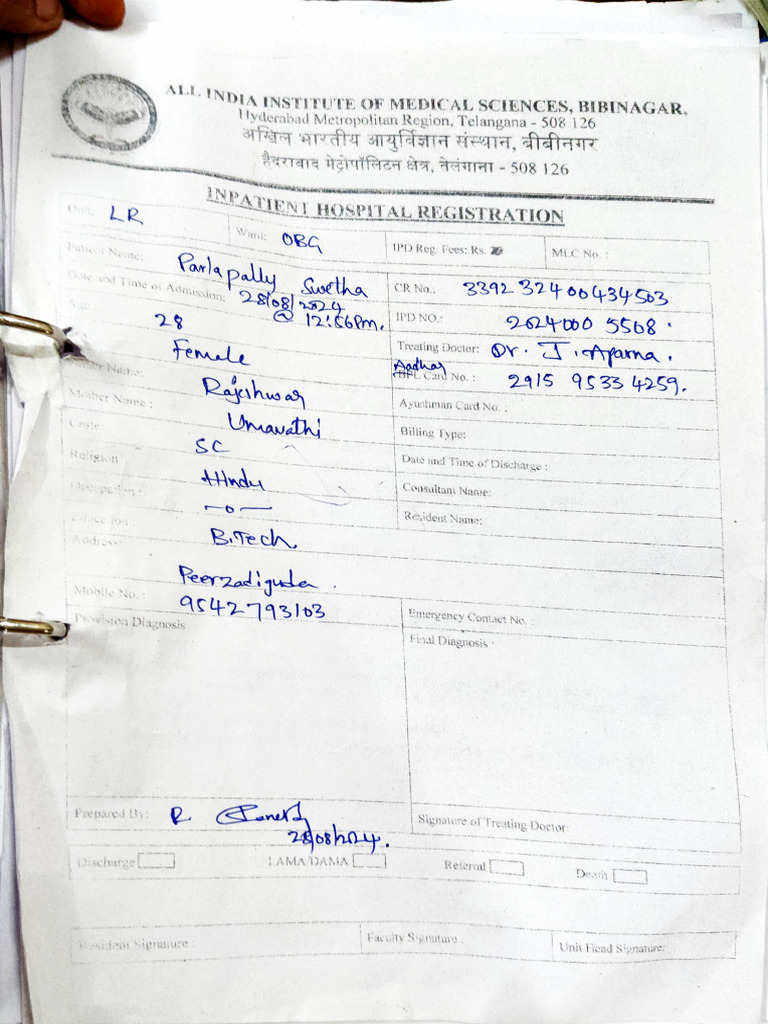 ALL INDIA INSTITUTE OF MEDICAL SCIENCES, BIBINAGAR,
Hyderabad Metropolitan Region, Telangana - 508 126
अखिल भारतीय आयुर्विज्ञान संस्थान, बीबीनगर
हैदराबाद मेट्रोपॉलिटन क्षेत्र, तेलंगाना - 508 126
INPATIENT HOSPITAL REGISTRATION
Unit: LR Ward: OBG IPD Reg. Fees: Rs. MLC No. :
Patient Name: Parlapally Swetha CR No.: 33923240043 4503
Date and Time of Admission: 28/08/2024 @ 12:56Pm. IPD NO.: 2024000 5508.
28 Treating Doctor: Dr. J. Aparna.
Female Aadhar BPL Card No. : 2915 9533 4259.
Name: Rajeshwar Ayushman Card No. :
Mother Name : Umavathi Billing Type:
Caste: SC Date and Time of Discharge :
Religion Hindu Consultant Name:
Occupation: -o- Resident Name:
Education: B.Tech
Address: Peerzadiguda.
Mobile No. : 9542793103 Emergency Contact No. :
Provision Diagnosis Final Diagnosis
Prepared By: R Signature of Treating Doctor:
28/08/2024.
Discharge LAMA/DAMA Referral Death
Resident Signature : Faculty Signature : Unit Head Signature: